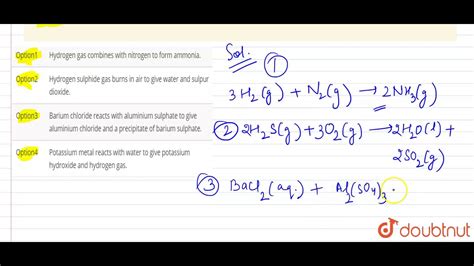 Option1 Hydrogen gas combines with nitrogen to form ammonia.
Option2 Hydrogen sulphide gas burns in air to give water and sulpur
dioxide.
Option3 Barium chloride reacts with aluminium sulphate to give
aluminium chloride and a precipitate of barium sulphate.
Option4 Potassium metal reacts with water to give potassium
hydroxide and hydrogen gas.
Sol.
①
3H₂(g) + N₂(g) → 2NH₃(g)
② 2H₂S(g) + 3O₂(g) → 2H₂O(l) +
2SO₂(g)
③ BaCl₂(aq.) + Al₂(SO₄)₃
doubtnut